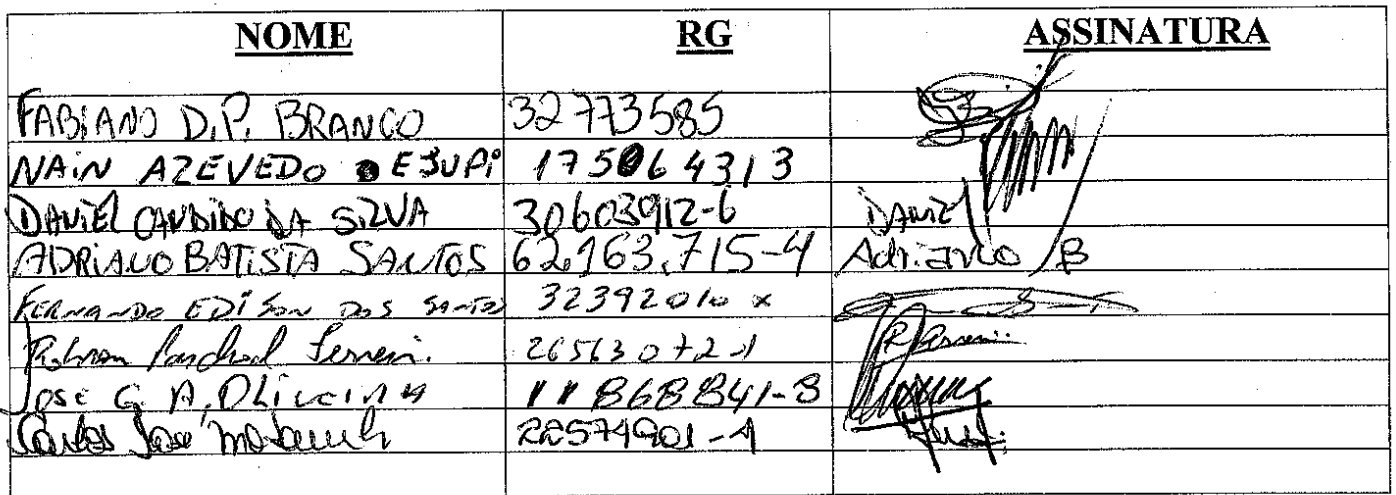 NOME RG ASSINATURA
FABIANO D.P. BRANCO 32773585
NAIN AZEVEDO 175064313
DANIEL CANDIDO DA SILVA 30603912-6 DANIEL
ADRIANO BATISTA SANTOS 62.163.715-4 Adriano B
FERNANDO EDISON DOS SANTOS 32392010 x
Ferreira 26563072-1
JOSE G A. OLIVEIRA 11868841-3
Carlos Jose 22574901-1